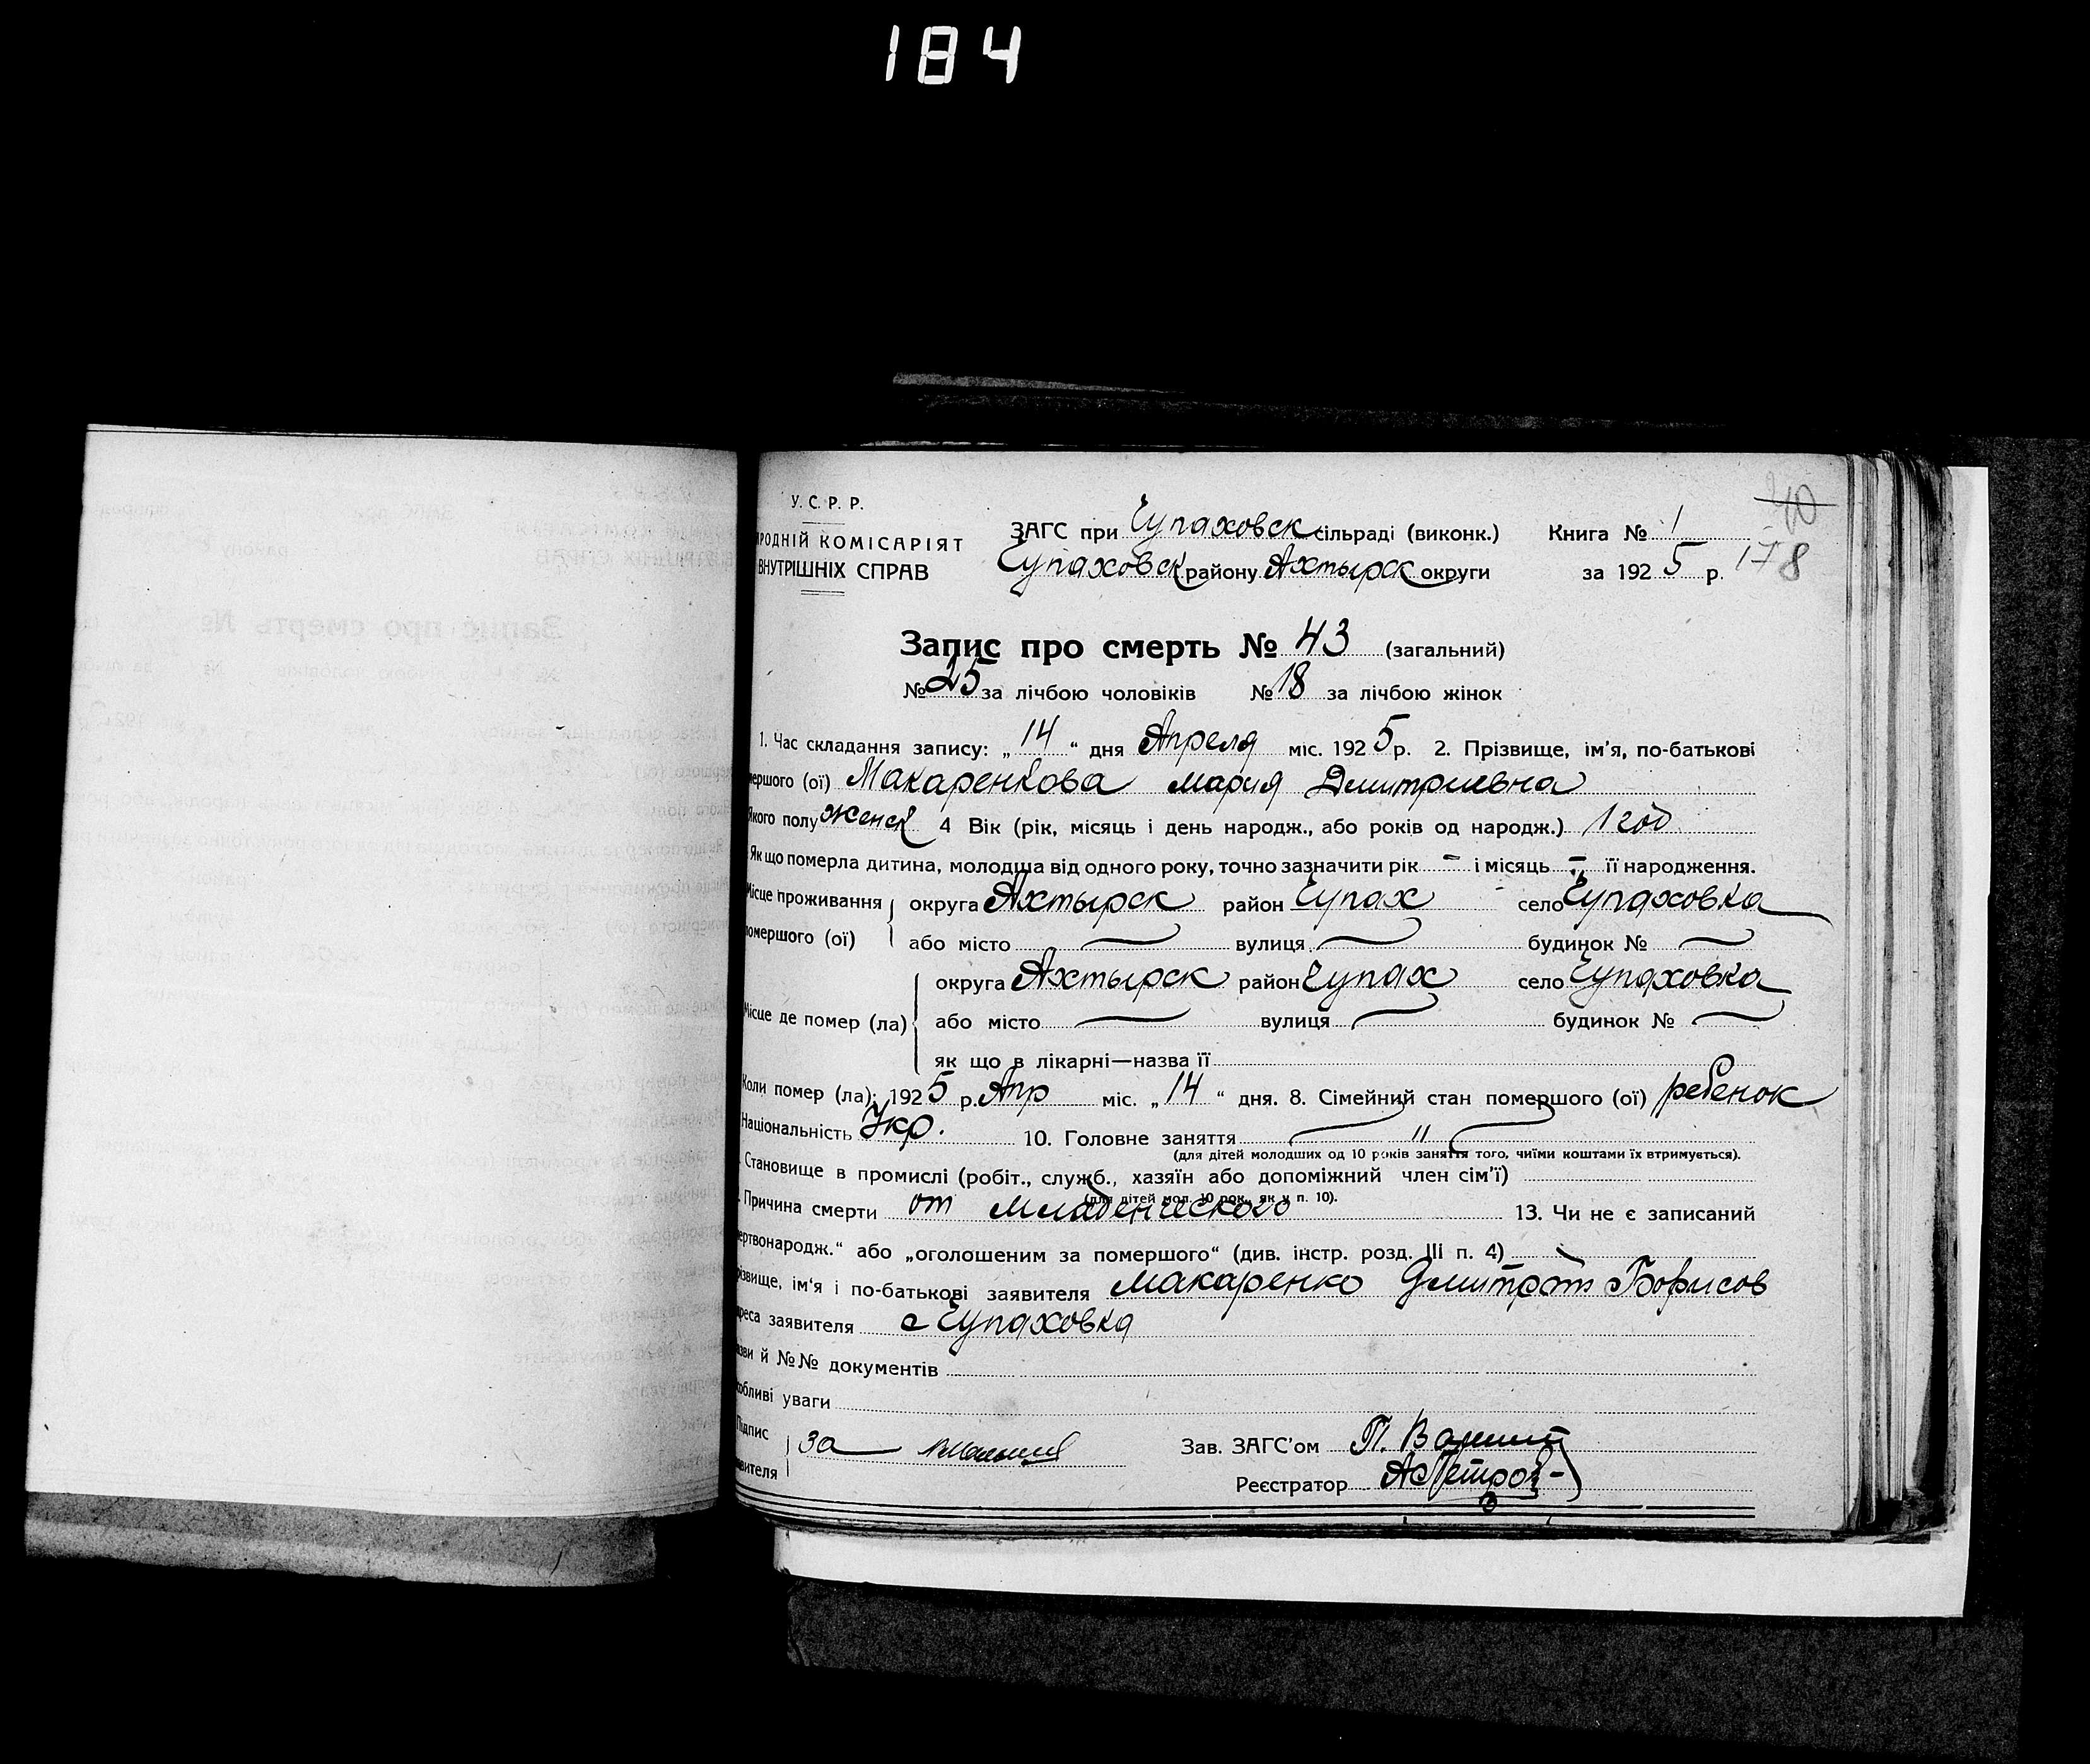 184
У. С. Р. Р.
РОДНІЙ КОМІСАРІЯТ
ВНУТРІШНІХ СПРАВ
ЗАГС при Чупаховск сільраді (виконк.)
Чупаховск району Ахтырск округи
Книга № 1
за 1925 р.
40
178
Запис про смерть № 43 (загальний)
№ 25 за лічбою чоловіків № 18 за лічбою жінок
1. Час складання запису: „14“ дня Апреля міс. 1925 р. 2. Прізвище, ім'я, по-батькові
мершого (ої) Макаренкова Мария Дмитриевна
якого полу женск 4 Вік (рік, місяць і день народж., або років од народж.) 1 год
Як що померла дитина, молодша від одного року, точно зазначити рік – і місяць – її народження.
Місце проживання округа Ахтырск район Чупах село Чупаховка
помершого (ої) або місто — вулиця — будинок № —
округа Ахтырск район Чупах село Чупаховка
Місце де помер (ла) або місто — вулиця — будинок № —
як що в лікарні—назва її
Коли помер (ла): 1925 р. Апр міс. „14“ дня. 8. Сімейний стан помершого (ої) ребенок
Національність Укр. 10. Головне заняття — " —
(для дітей молодших од 10 років заняття того, чиїми коштами їх втримується).
Становище в промислі (робіт., служб., хазяїн або допоміжний член сім'ї)
(для дітей мол. 10 рок., як у п. 10).
Причина смерти от Младенческого 13. Чи не є записаний
ертвонародж.“ або „оголошеним за помершого“ (див. інстр. розд. III п. 4)
різвище, ім'я і по-батькові заявителя Макаренко Дмитрий Борисов
реса заявителя с Чупаховка
зви й №№ документів
обливі уваги
Підпис
явителя За
Зав. ЗАГС'ом П.
Реєстратор АПетров